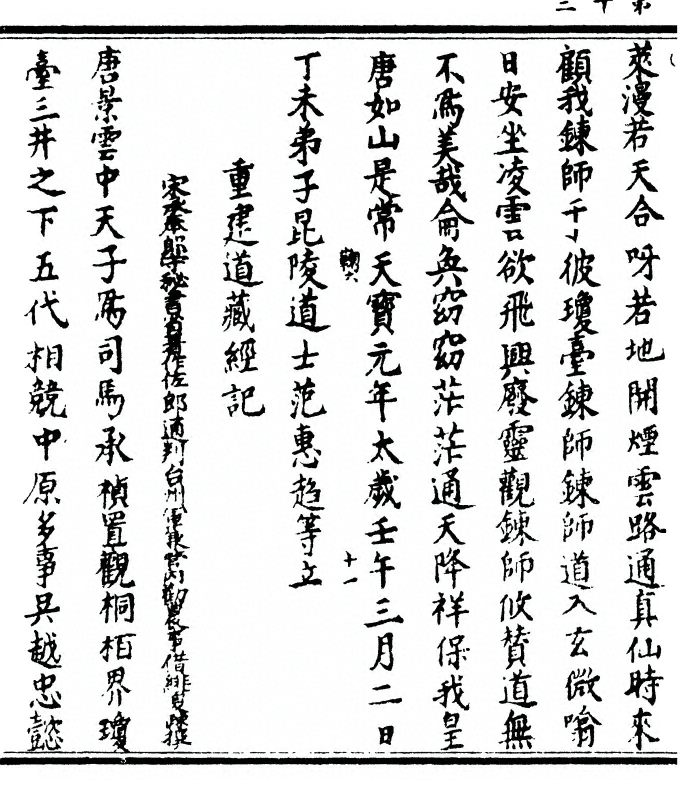 萊漫若天合呀若地開煙雲路通真仙時來
顧我鍊師千彼瓊臺鍊師鍊師道入玄微噏
日安坐凌雲欲飛興廢靈觀鍊師攸贊道無
不爲美哉侖奐窈窈茫茫通天降祥保我皇
唐如山是常天寶元年太歲壬午三月二日
十一
丁未弟子毘陵道士范惠超等立
重建道藏經記
宋承奉郎守秘書省著作佐郎通判台州軍兼管內勸農事借緋夏竦撰
唐景雲中天子爲司馬承禎置觀桐栢界瓊
臺三井之下五代相競中原多事吳越忠懿